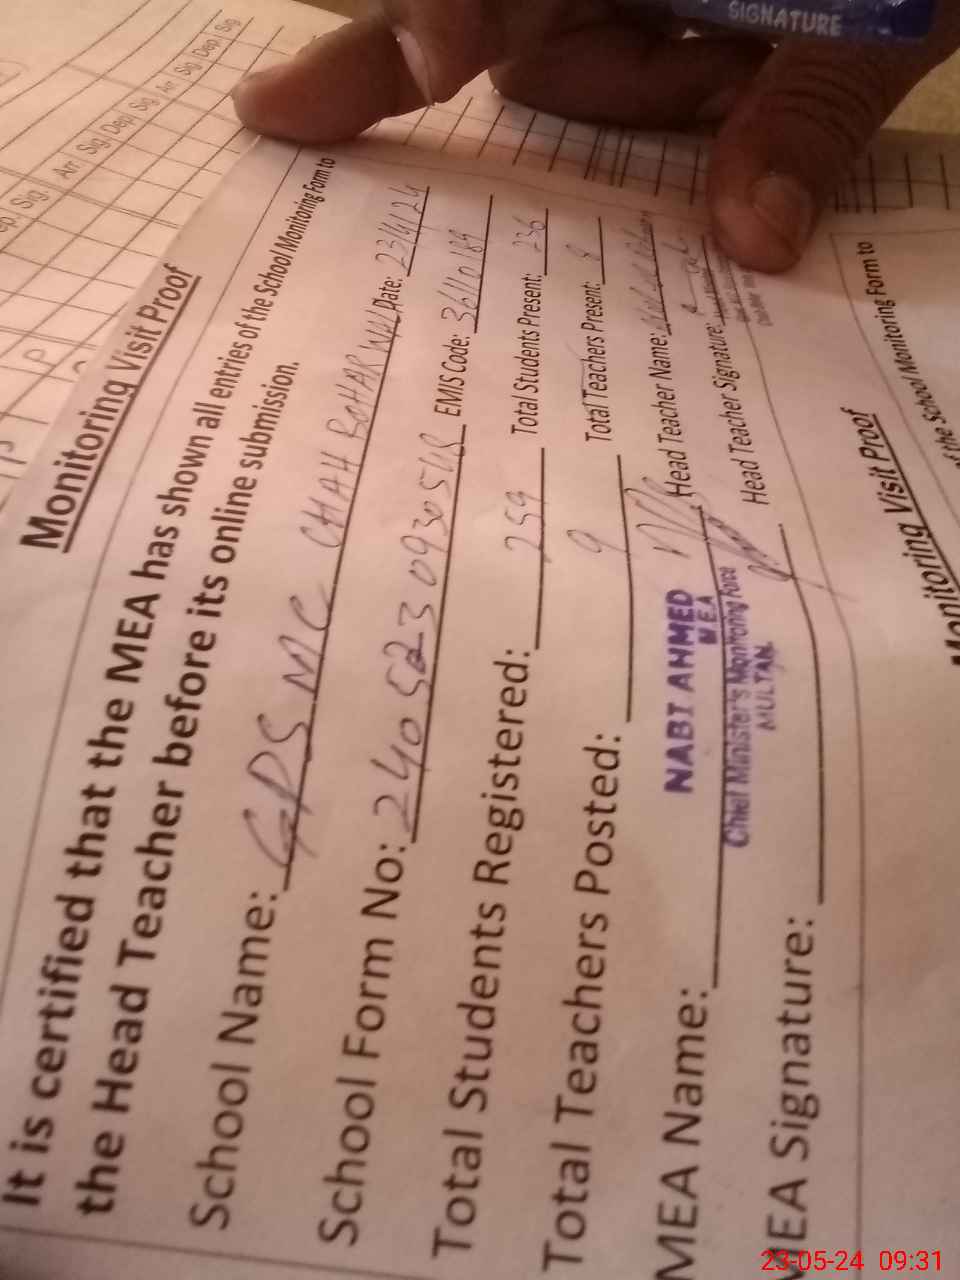 SIGNATURE
Sig. Arr. Sig. Dep. Sig. Arr. Sig. Dep. Sig.
Monitoring Visit Proof
It is certified that the MEA has shown all entries of the School Monitoring Form to
the Head Teacher before its online submission.
School Name: GPS MC CHAH BOHAR WALA Date: 23/4/24
School Form No: EMIS Code: 36110189
Total Students Registered: 259 Total Students Present: 236
Total Teachers Posted: 9 Total Teachers Present: 8
MEA Name: NABI AHMED Head Teacher Name:
MEA
Chief Minister's Monitoring Force
MULTAN.
MEA Signature: Head Teacher Signature:
Monitoring Visit Proof
of the School Monitoring Form to
23-05-24 09:31